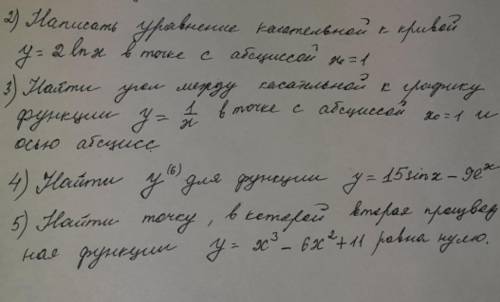 2) Написать уравнение касательной к кривой
y = 2 ln x в точке с абсциссой x₀ = 1
3) Найти угол между касательной к графику
функции y = 1/x в точке с абсциссой x₀ = 1 и
осью абсцисс.
4) Найти y⁽⁶⁾ для функции y = 15 sin x - 9eˣ
5) Найти точку, в которой вторая производ
ная функции y = x³ - 6x² + 11 равна нулю.